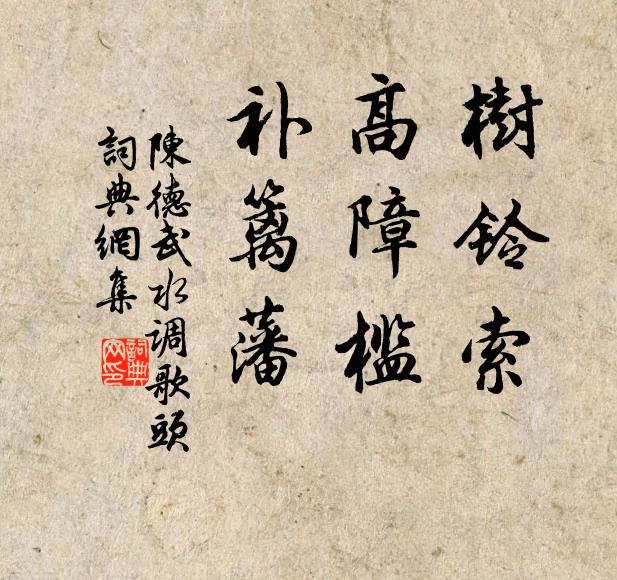 樹鈴索
高障檻
补篱藩
陳德武水调歌頭
詞典網集
詞典
网印